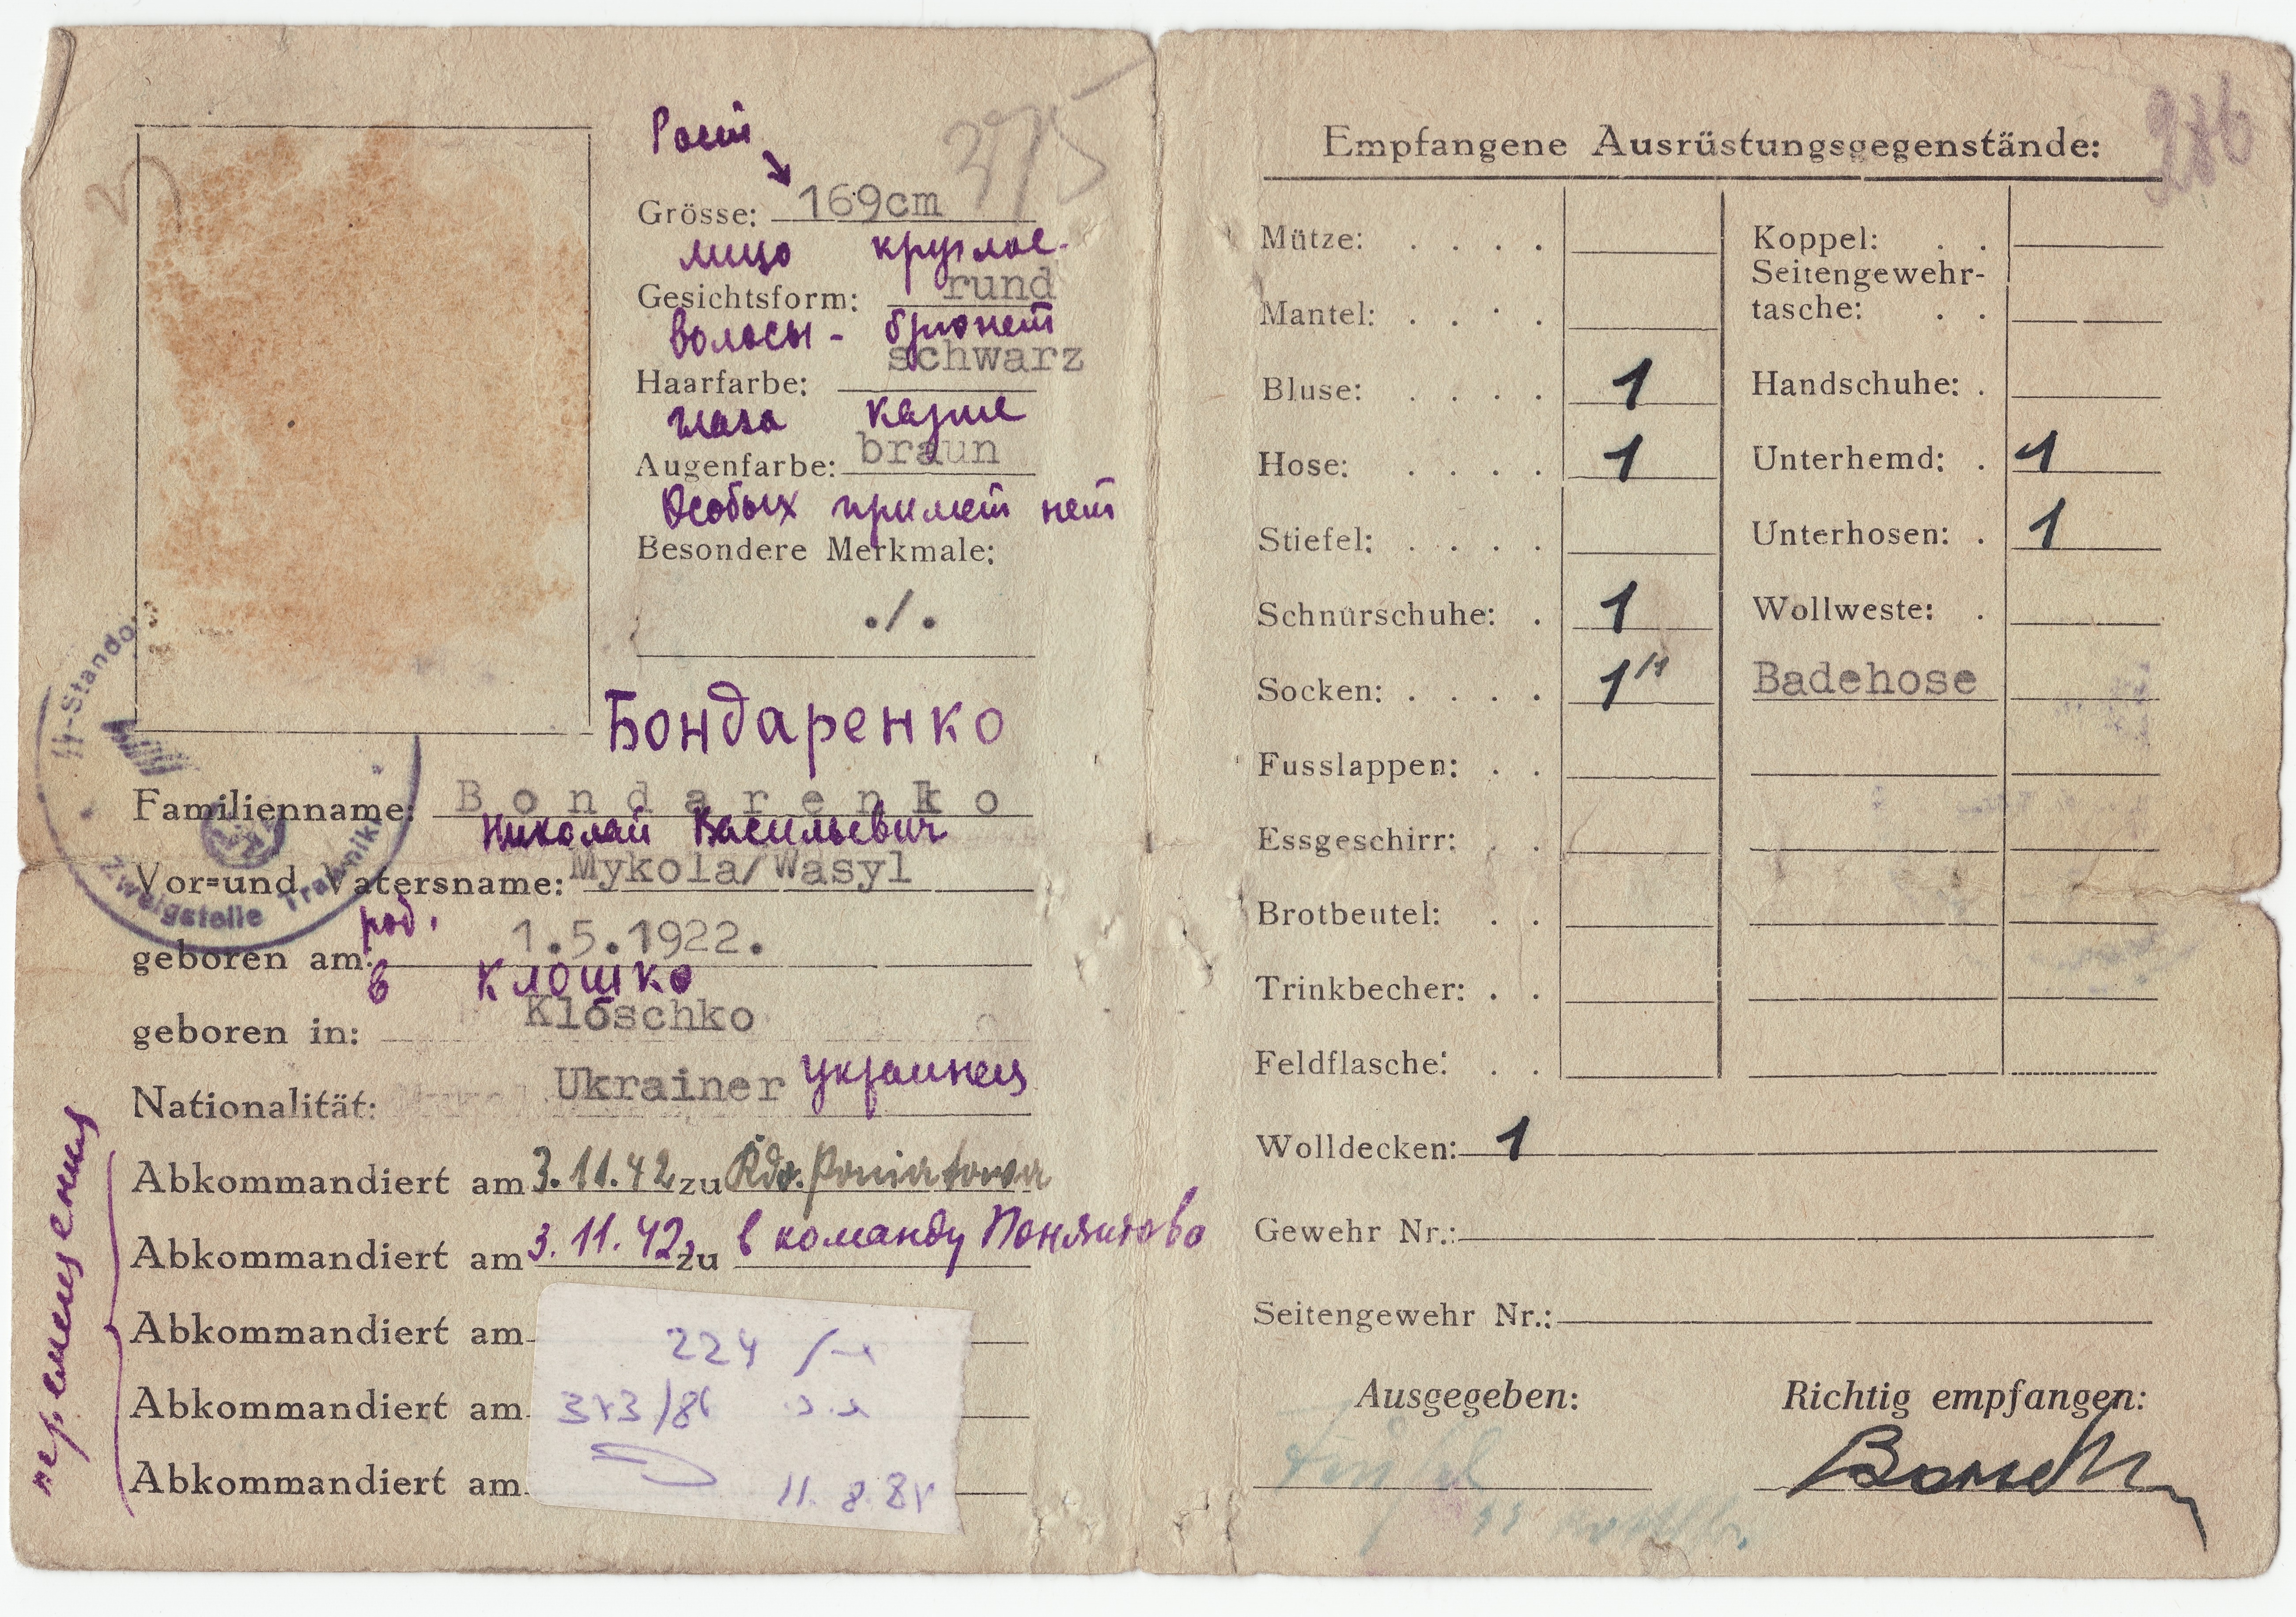 Рост
375
Grösse: 169cm
лицо круглое
Gesichtsform: rund
волосы - брюнет
Haarfarbe: schwarz
глаза карие
Augenfarbe: braun
Особых примет нет
Besondere Merkmale:
./.
Бондаренко
Familienname: Bondarenko
Николай Васильевич
Vor=und Vatersname: Mykola/Wasyl
род.
geboren am: 1.5.1922.
в Клошко
geboren in: Klöschko
Nationalität: Ukrainer украинец
Abkommandiert am 3.11.42 zu Kdo. Poniatowa
Abkommandiert am 3.11.42 zu в команду Понятово
Abkommandiert am
Abkommandiert am
Abkommandiert am
перемещения
224
11.8.8
Zweigstelle Trawniki
286
Empfangene Ausrüstungsgegenstände:
Mütze: . . . .
Mantel: . . . .
Bluse: . . . . 1
Hose: . . . . 1
Stiefel: . . . .
Schnürschuhe: . 1
Socken: . . . . 1
Fusslappen: . .
Essgeschirr: . .
Brotbeutel: . .
Trinkbecher: . .
Feldflasche: . .
Koppel: . .
Seitengewehr-
tasche: . .
Handschuhe: .
Unterhemd: . 1
Unterhosen: . 1
Wollweste: .
Badehose
Wolldecken: 1
Gewehr Nr.:
Seitengewehr Nr.:
Ausgegeben: Richtig empfangen: